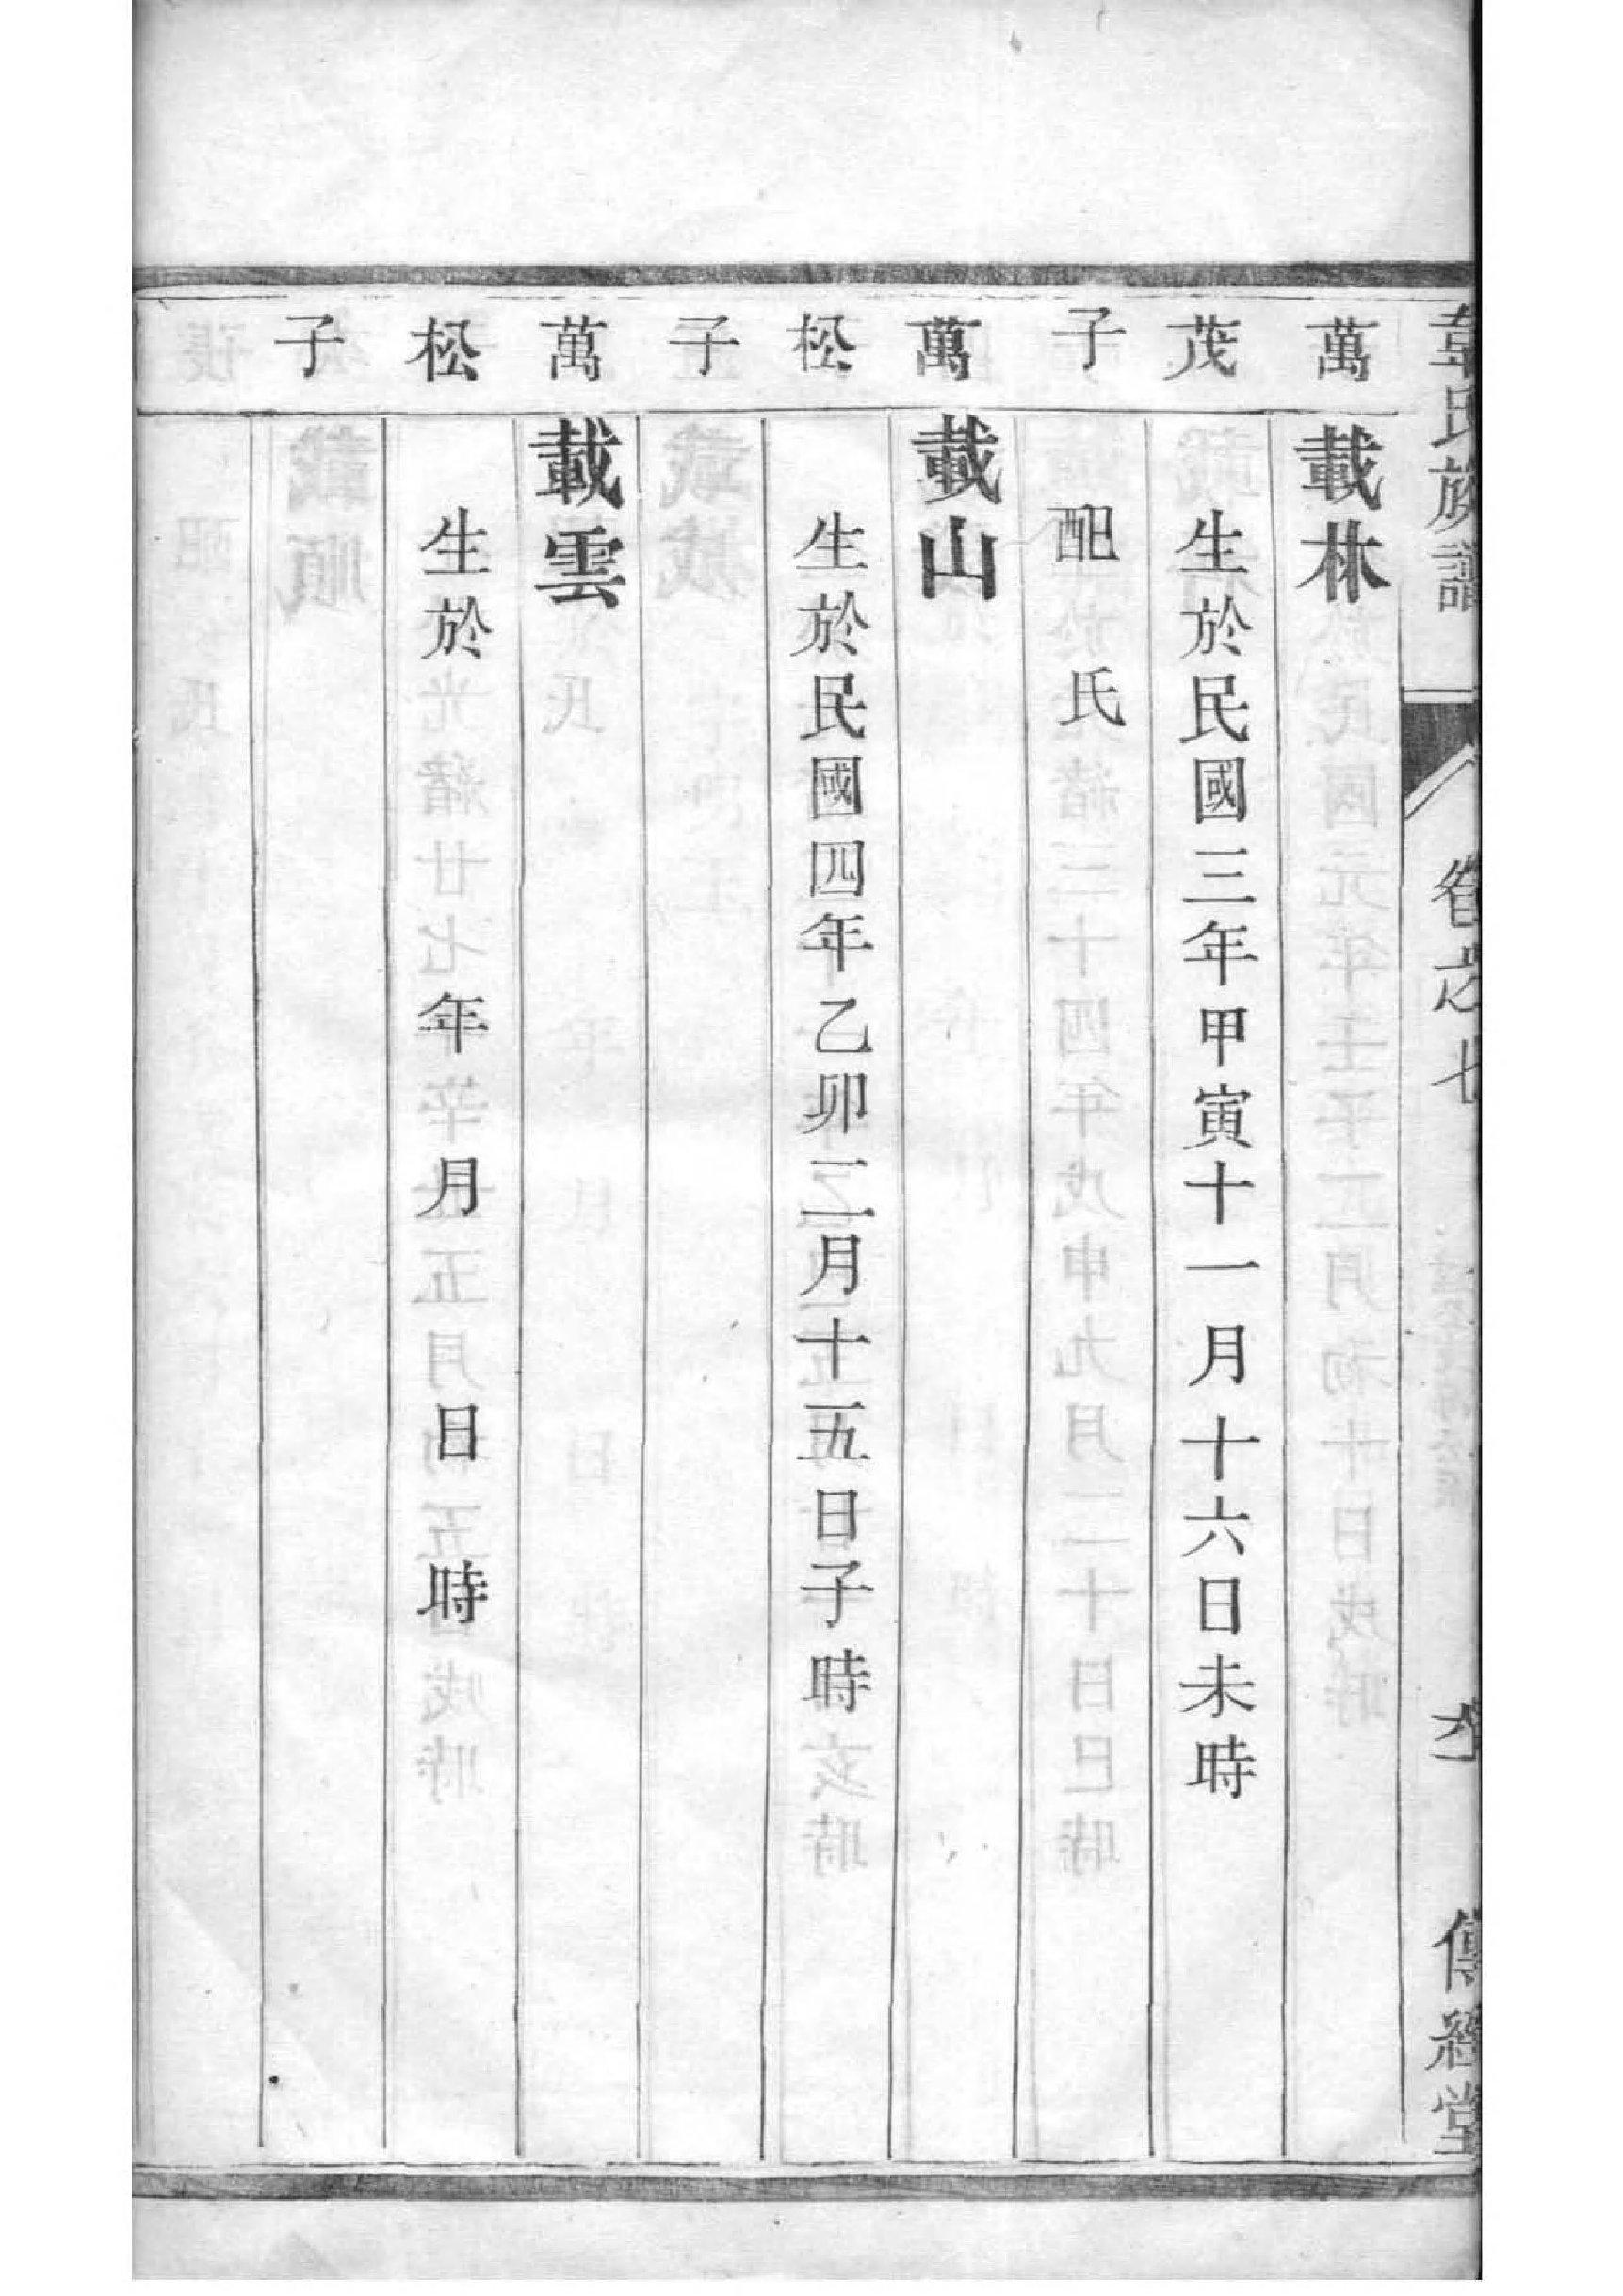 韋氏族譜 卷之七 傳經堂
萬 載林
茂 生於民國三年甲寅十一月十六日未時
子 配 氏
萬 載山
松 生於民國四年乙卯二月十五日子時
子
萬 載雲
松 生於 年 月 日 時
子